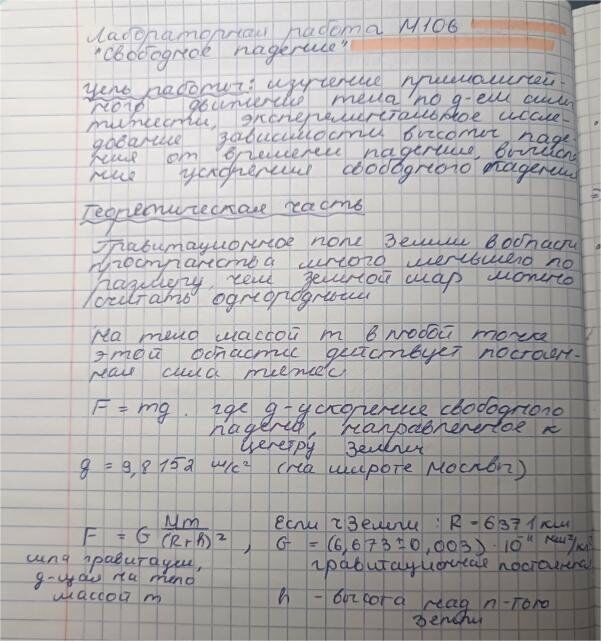 Лабораторная работа М106
"Свободное падение"
Цель работы: изучение прямолиней-
ного движения тела по д-ем силы
тяжести, эксперементальное иссле-
дование зависимости высоты паде-
ния от времени падения, вычисл
ния ускорения свободного падения
Теоретическая часть
Гравитационное поле Земли в област
пространства много меньшего по
размеру, чем земной шар можно
считать однородным
На тело массой m в любой точке
этой области действует постоян-
ная сила тяжес
F = mg . где g - ускорение свободного
падени, направленное к
центру Земли
g = 9,8152 м/с² (на широте Москвы)
F = G Mm/(R+h)² , Если r Земли : R = 6371 км
G = (6,673±0,003) · 10⁻¹¹
сила гравитации, гравитационная постоянна
д-щая на тело
массой m h - высота над п-тью
Земли